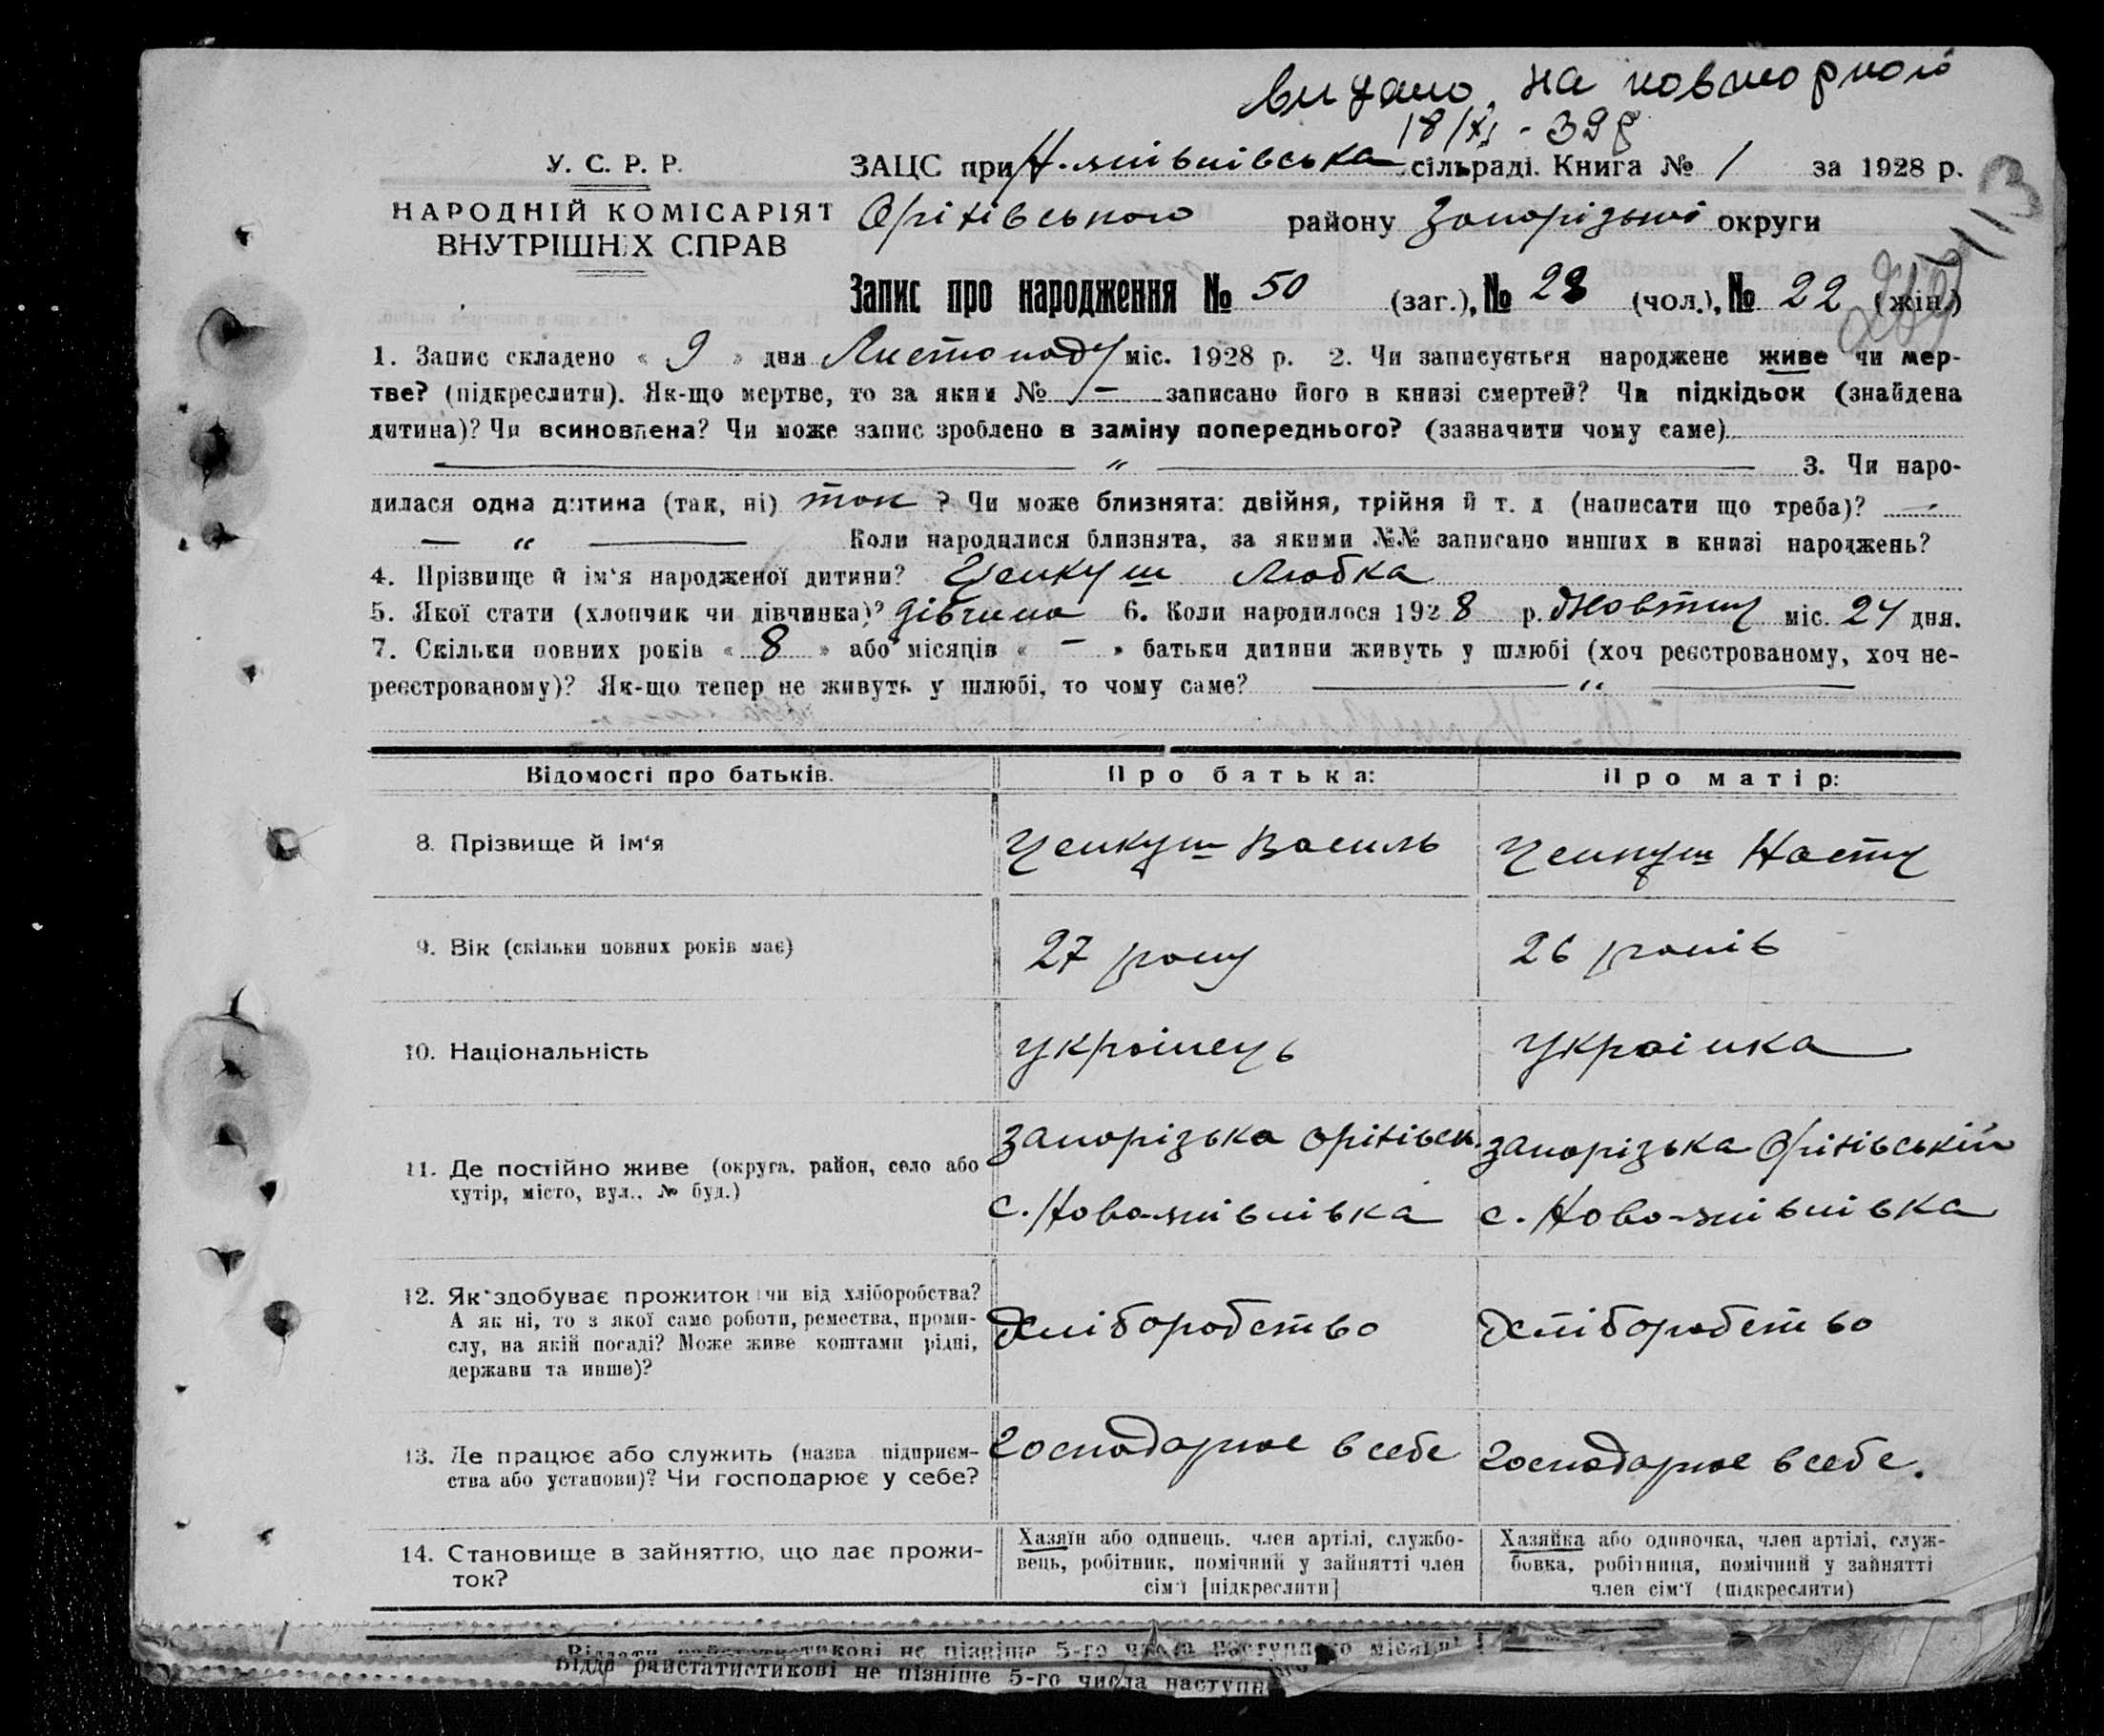 видано на повторной
18/XI - 39 р
У. С. Р. Р.
НАРОДНІЙ КОМІСАРІЯТ
ВНУТРІШНІХ СПРАВ
ЗАЦС при сільраді. Книга № 1 за 1928 р.
Оріхівського району Запорізької округи
113
Запис про народження № 50 (заг.), № 28 (чол.), № 22 (жін.)
1. Запис складено « 9 » дня Листопаду міс. 1928 р. 2. Чи записується народжене живе чи мер-
тве? (підкреслити). Як-що мертве, то за яким № — записано його в книзі смертей? Чи підкідьок (знайдена
дитина)? Чи всиновлена? Чи може запис зроблено в заміну попереднього? (зазначити чому саме)
— " — 3. Чи наро-
дилася одна дитина (так, ні) так ? Чи може близнята: двійня, трійня й т. д (написати що треба)? —
— " — Коли народилися близнята, за якими №№ записано инших в книзі народжень?
4. Прізвище й ім'я народженої дитини? Цепкуш Любка
5. Якої стати (хлопчик чи дівчинка)? дівчина 6. Коли народилося 1928 р. Жовтню міс. 24 дня.
7. Скільки повних років « 8 » або місяців « — » батьки дитини живуть у шлюбі (хоч реєстрованому, хоч не-
реєстрованому)? Як-що тепер не живуть у шлюбі, то чому саме? — " —
Відомості про батьків. Про батька: Про матір:
8. Прізвище й ім'я Цепкуш Василь Цепкуш Настя
9. Вік (скільки повних років має) 27 року 26 років
10. Національність українець українка
11. Де постійно живе (округа, район, село або
хутір, місто, вул., № буд.)
Запорізька Оріхівськ. Запорізька Оріхівській
12. Як здобуває прожиток чи від хліборобства?
А як ні, то з якої саме роботи, ремества, проми-
слу, на якій посаді? Може живе коштами рідні,
держави та инше)?
Хліборобство Хліборобство
13. Де працює або служить (назва підприєм-
ства або установи)? Чи господарює у себе?
господарює в себе господарює в себе.
14. Становище в зайняттю, що дає прожи-
ток?
Хазяїн або одинець, член артілі, службо-
вець, робітник, помічний у зайнятті член
сім'ї [підкреслити]
Хазяйка або одиночка, член артілі, служ-
бовка, робітниця, помічний у зайнятті
член сім'ї (підкреслити)
не пізніше 5-го числа наступного місяця!
райстатистикові не пізніше 5-го числа наступн